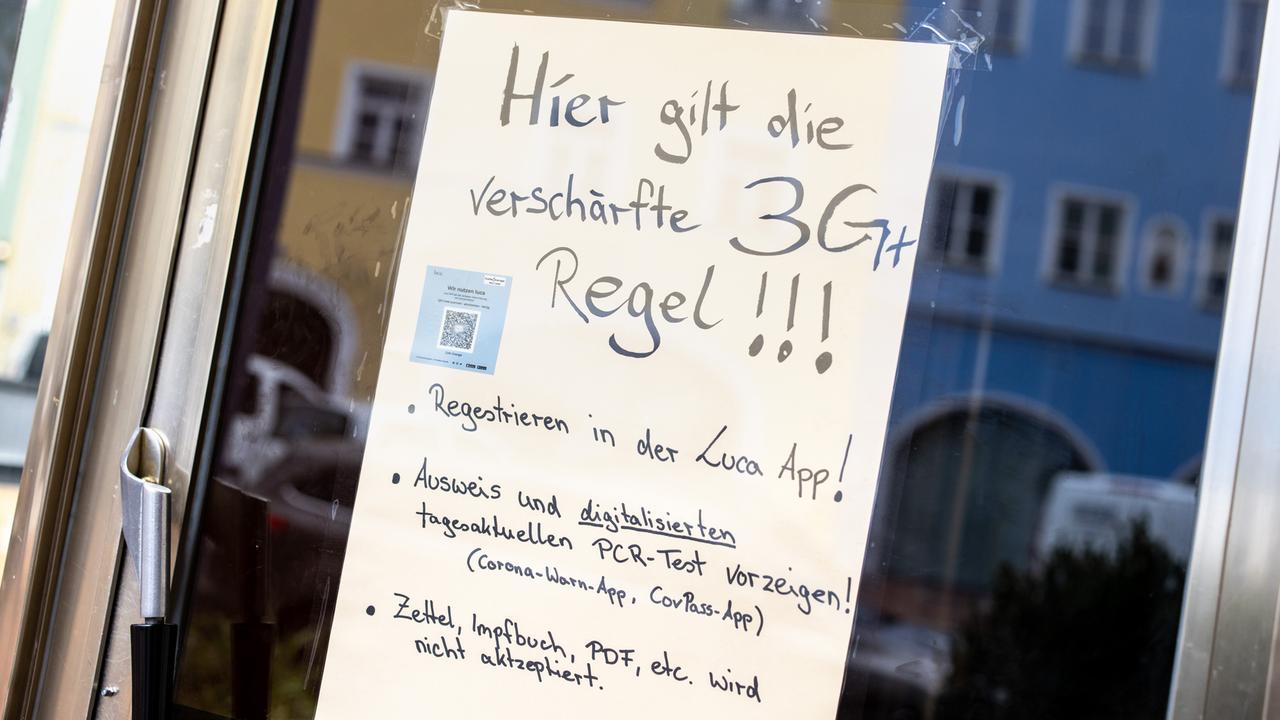 Hier gilt die
verschärfte 3G+
Regel !!!
Wir nutzen luca
• Regestrieren in der Luca App!
• Ausweis und digitalisierten
tagesaktuellen PCR-Test vorzeigen!
(Corona-Warn-App, CovPass-App)
• Zettel, Impfbuch, PDF, etc. wird
nicht aktzeptiert.